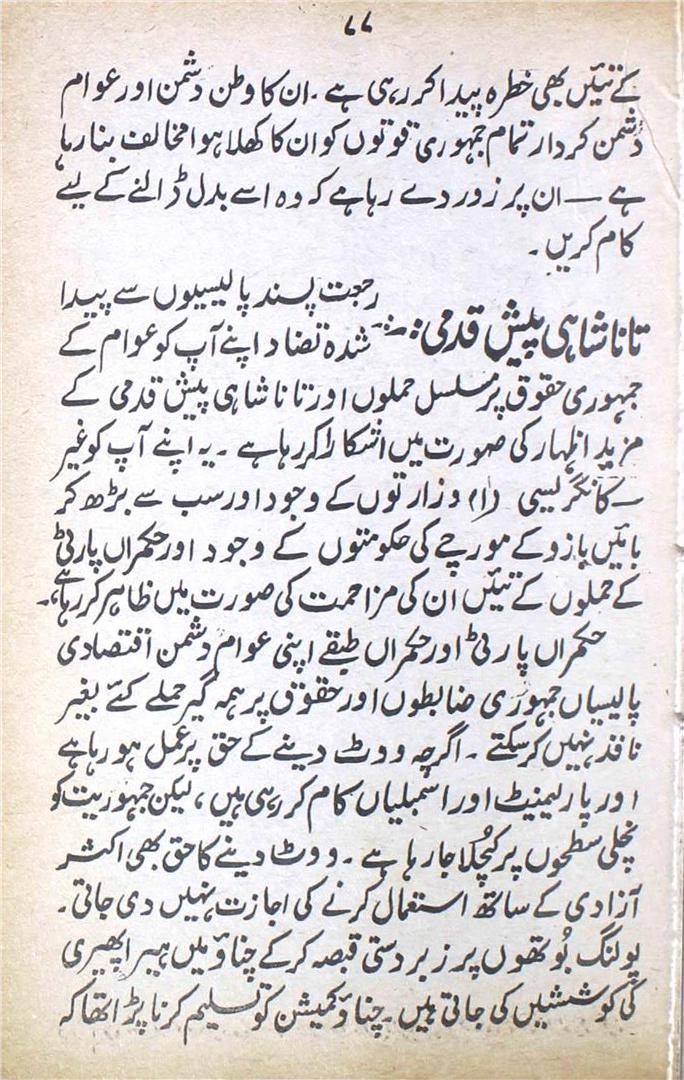 ۷۷
کے تئیں بھی خطرہ پیدا کر رہی ہے۔ ان کا وطن دشمن اور عوام
دشمن کردار تمام جمہوری قوتوں کو ان کا کھلا ہوا مخالف بنا رہا
ہے — ان پر زور دے رہا ہے کہ وہ اسے بدل ڈالنے کے لیے
کام کریں۔
رجعت پسند پالیسیوں سے پیدا
تانا شاہی پیش قدمی:۔ شدہ تضاد اپنے آپ کو عوام کے
جمہوری حقوق پر مسلسل حملوں اور تانا شاہی پیش قدمی کے
مزید اظہار کی صورت میں آشکارا کر رہا ہے۔ یہ اپنے آپ کو غیر
—کانگریسی (ا) وزارتوں کے وجود اور سب سے بڑھ کر
بائیں بازو کے مورچے کی حکومتوں کے وجود اور حکمراں پارٹی
کے حملوں کے تئیں ان کی مزاحمت کی صورت میں ظاہر کر رہا ہے۔
حکمراں پارٹی اور حکمراں طبقے اپنی عوام دشمن اقتصادی
پالیسیاں جمہوری ضابطوں اور حقوق پر ہمہ گیر حملے کئے بغیر
نافذ نہیں کر سکتے۔ اگرچہ ووٹ دینے کے حق پر عمل ہو رہا ہے
اور پارلیمنٹ اور اسمبلیاں کام کر رہی ہیں، لیکن جمہوریت کو
نچلی سطحوں پر کچلا جا رہا ہے۔ ووٹ دینے کا حق بھی اکثر
آزادی کے ساتھ استعمال کرنے کی اجازت نہیں دی جاتی۔
پولنگ بوتھوں پر زبردستی قبضہ کر کے چناؤ میں ہیرا پھیری
کی کوششیں کی جاتی ہیں۔ چناؤ کمیشن کو تسلیم کرنا پڑا تھا کہ